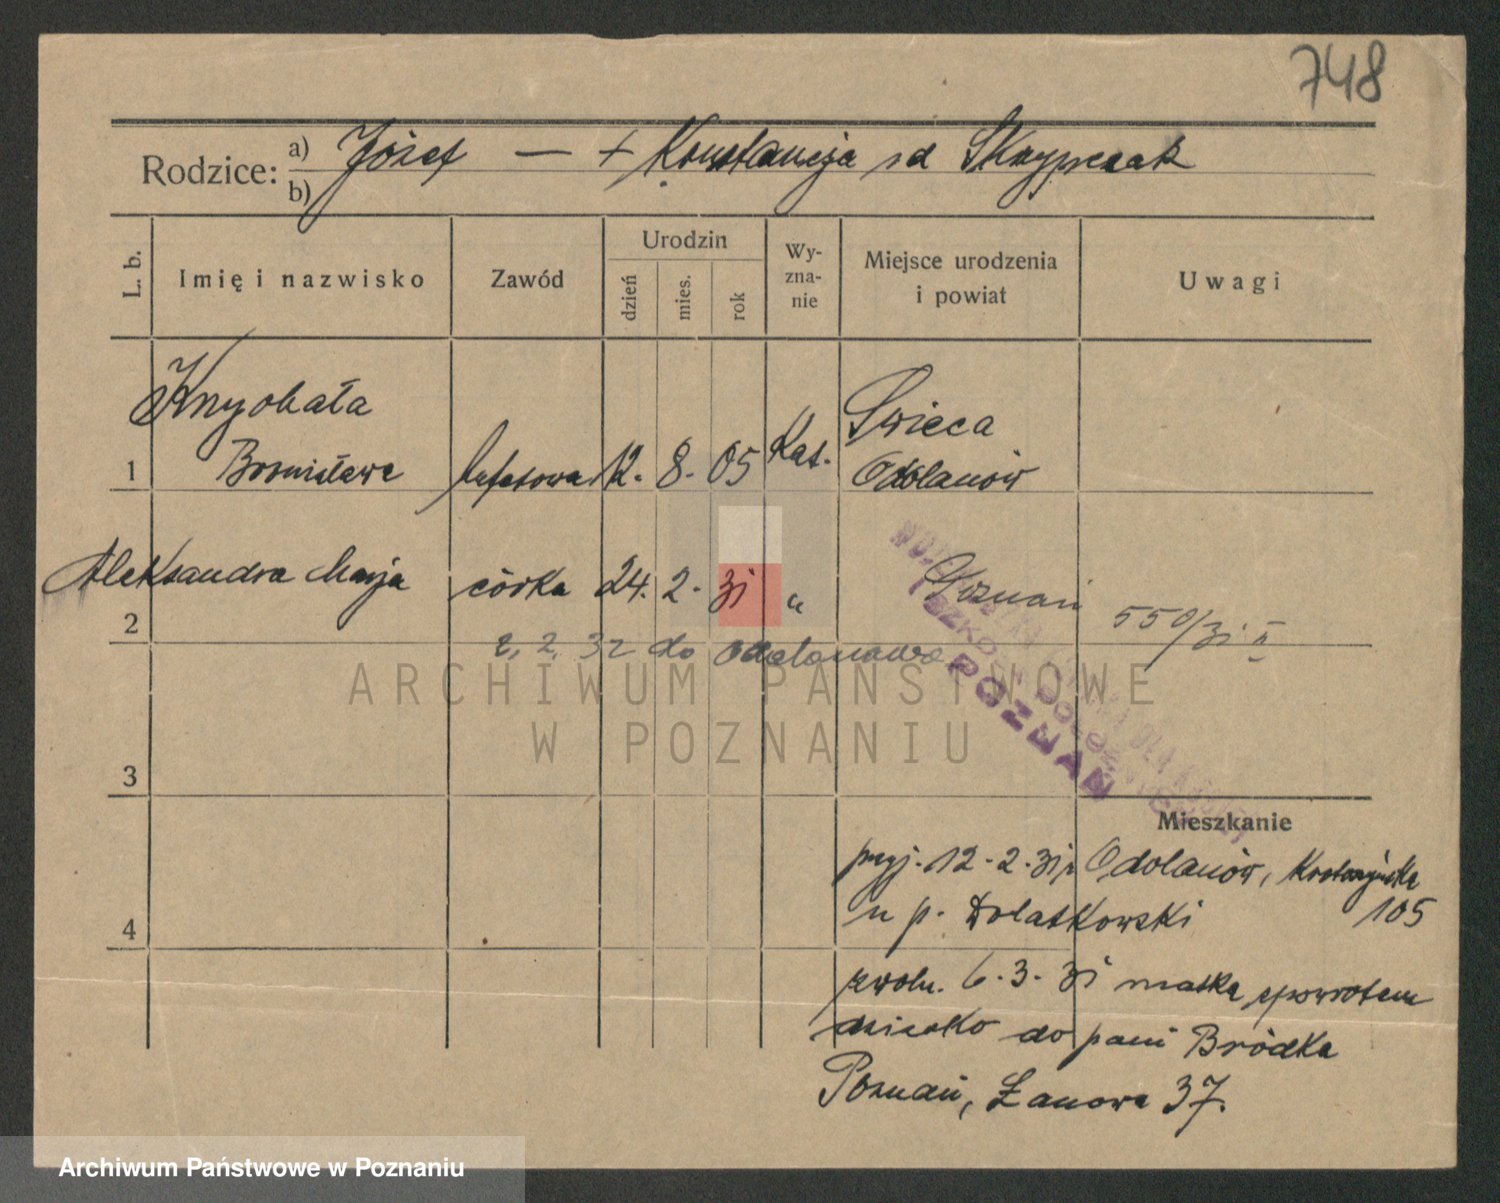 748
Rodzice: a) Józef — + Konstancja sd Skrzypczak
b)
L. b.
Imię i nazwisko
Zawód
Urodzin
dzień
mies.
rok
Wy-
zna-
nie
Miejsce urodzenia
i powiat
Uwagi
1
Bronisława
12. 8. 05
Kat.
Świeca
Odolanów
2
Aleksandra Marja
córka 24. 2. 31 "
Poznań
550/31 II
2. 2. 32 do Odolanowa
POZNAŃ
ARCHIWUM PAŃSTWOWE
W POZNANIU
3
Mieszkanie
przyj. 12.2.31 Odolanów, Krotoszyńska
105
u p. Dolatkowski
4
zwoln. 6.3.31 matka zpowrotem
dziecko do pani Bródka
Poznań, Łanowa 37.
Archiwum Państwowe w Poznaniu